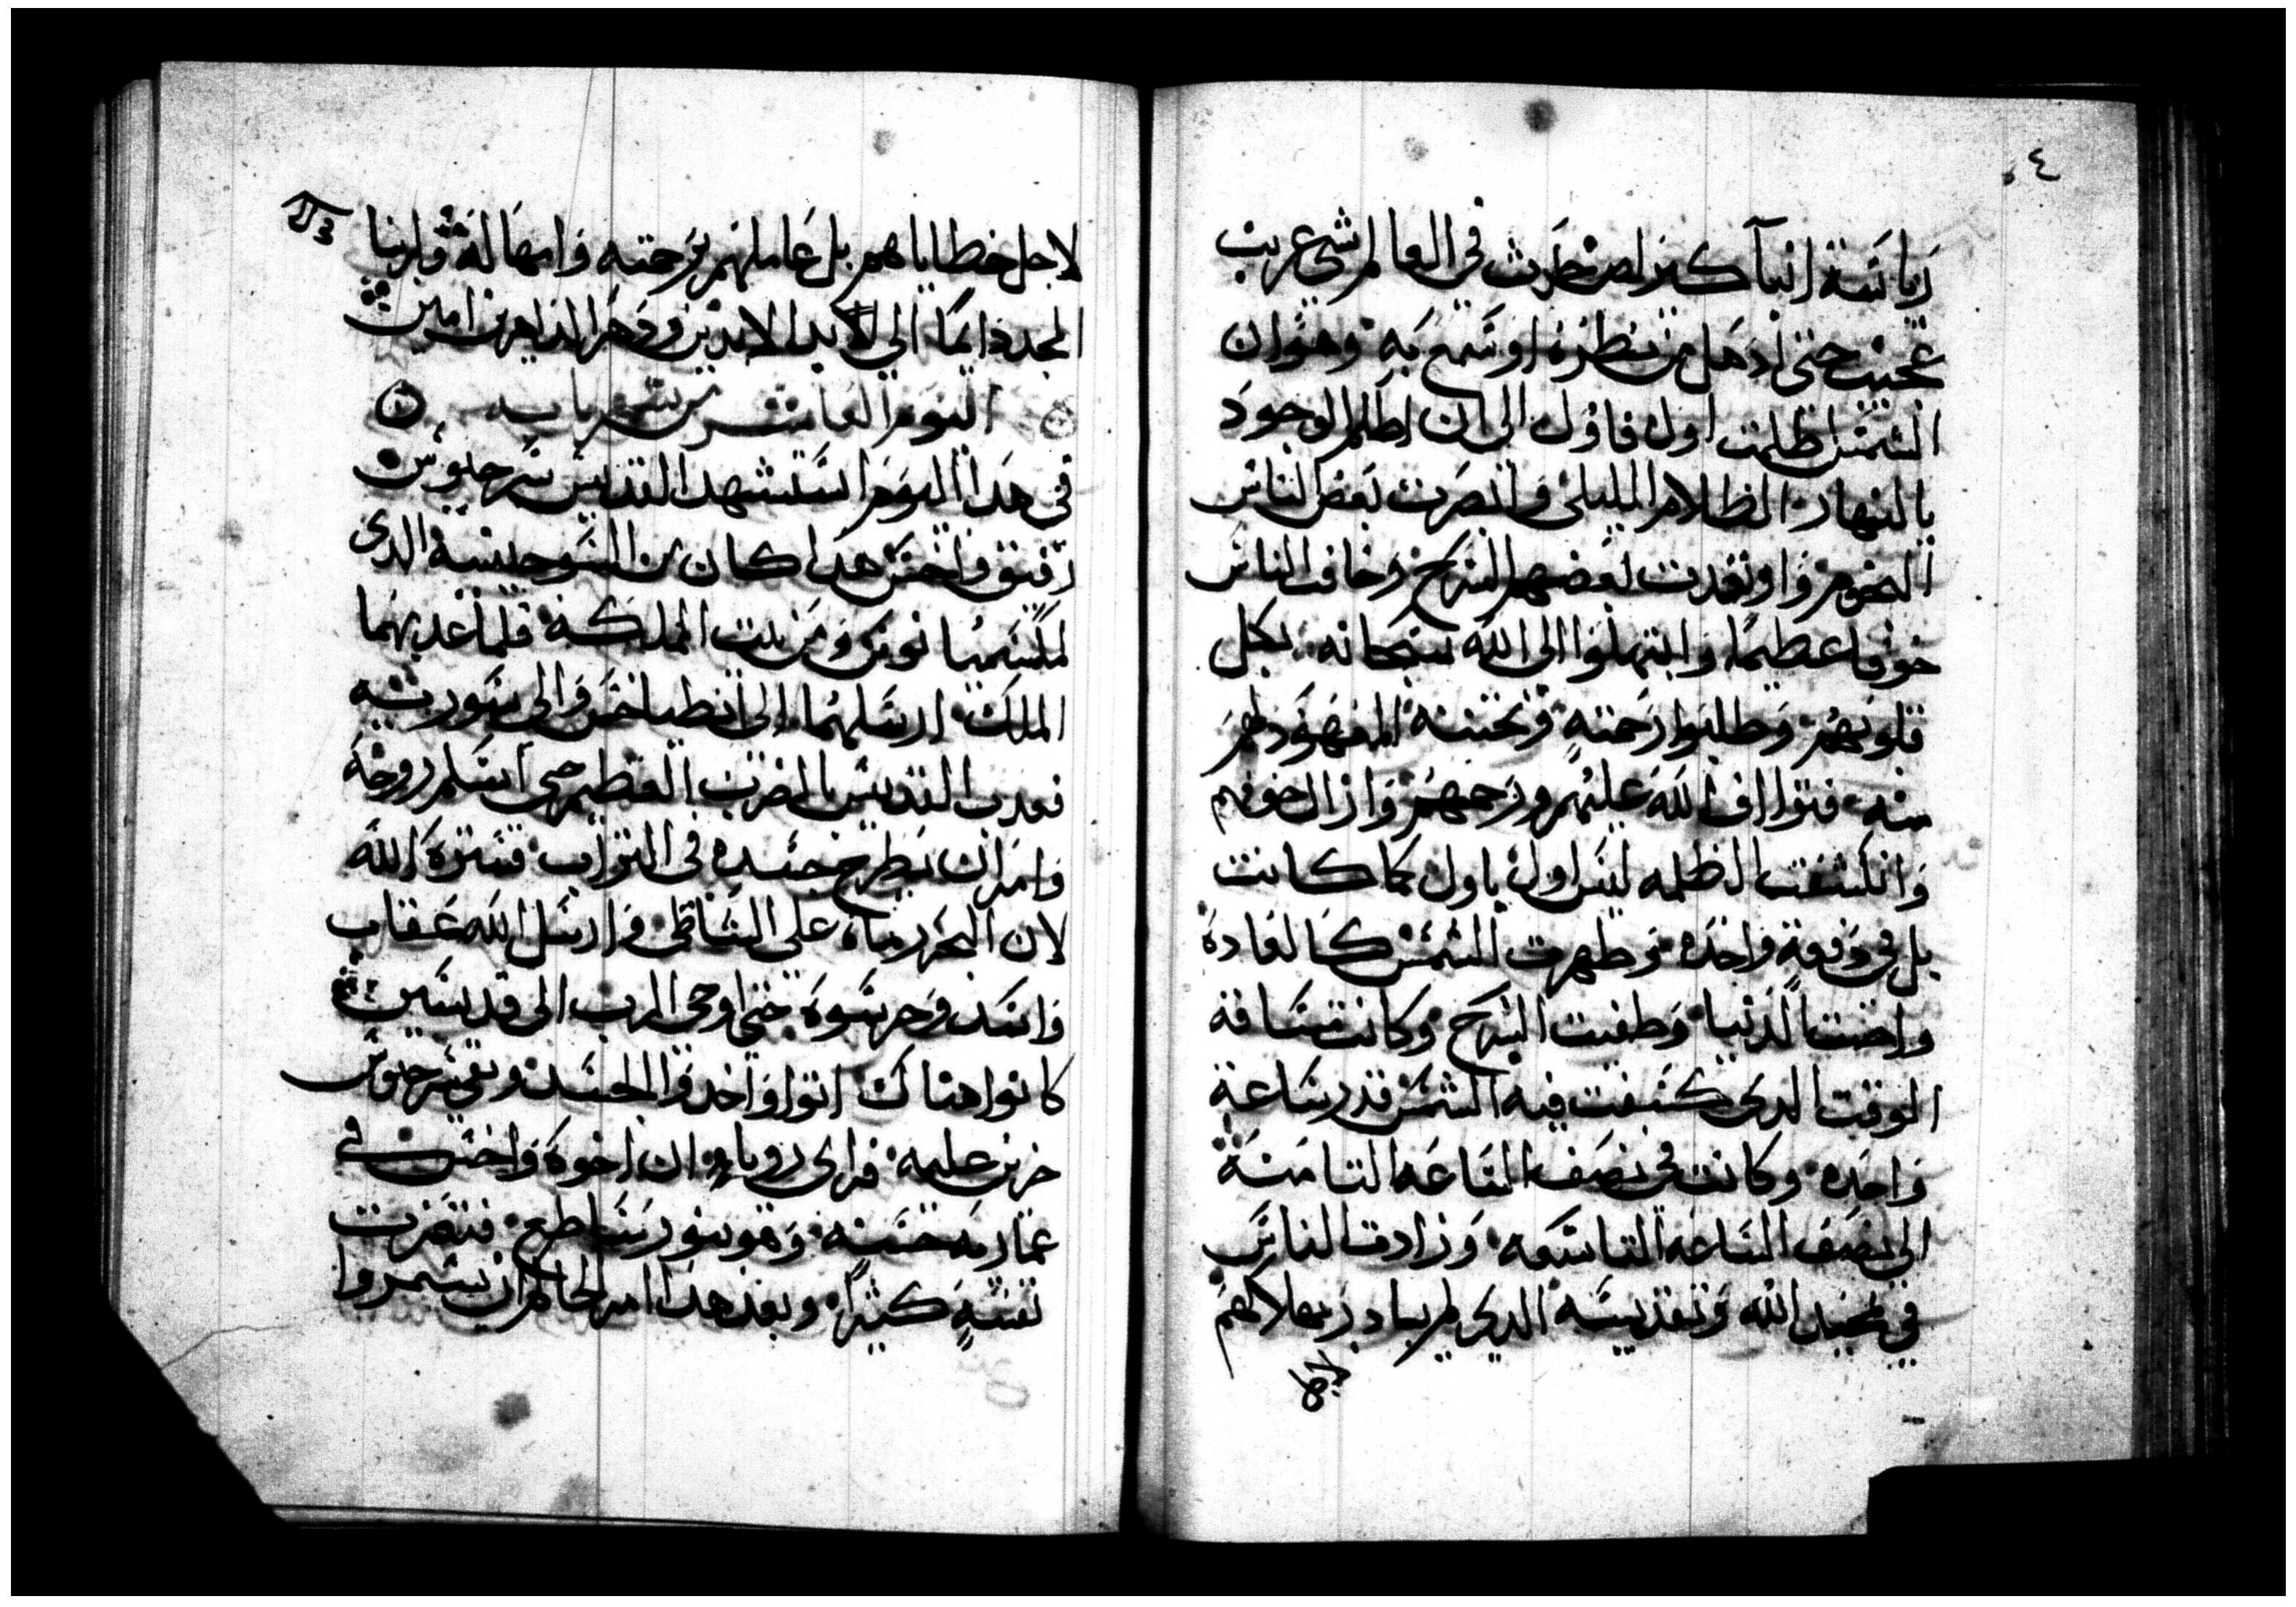 ٤
رياسة انبا كيرلص حدث في العالم شى غريب
عجيب حتى ادهل من ينظره او سمع به وهو ان
الشمس اظلمت اول فاول الى ان اظلم الوجود
بالنهار الظلام الليلى وابصرت بعض الناس
النجوم واوقدت بعضهم السرج وخافت الناس
خوفا عظيما وابتهلوا الى الله سبحانه بكل
قلوبهم وطلبوا رحمته وتحننه المعهود لهم
منه فتراف الله عليهم ورحمهم وازال خوفهم
وانكشفت الظلمه ليس اول باول كما كانت
بل في دفعة واحده وظهرت الشمس كالعاده
واضت الدنيا وطفيت السرج وكانت مسافة
الوقت الدى كسفت فيه الشمس قدر ساعة
واحده وكانت في نصف الساعه التامنة
الى نصف الساعة التاسعه وزادت الناس
في تمجيد الله وتقديسه الدى لم يبادر بهلاكهم
لاجل
لاجل خطاياهم بل عاملهم برحمته وامهاله ولربنا
المجد دايما الى ابد الابدين ودهر الداهرين امين
اليوم العاشر من شهر بابه
في هدا اليوم استشهد القديس سرجيوس
رفيق واخس هدا كان من الدى
لمكسيميانوس ومن بيت المملكه فلما عدبهما
الملك ارسلهما الى انطياخس والى سوريه
فعدب القديس بالضرب العظيم حتى اسلم روحه
وامر ان يطرح جسده في التراب فستره الله
لان البحر رماه على الشاطى وارسل الله عقاب
واسد وحرسوه حتى اوحى الرب الى قديسين
كانوا هناك اتوا واخدوا الجسد وبقى سرجيوس
حزين عليه فراى روياه ان اخوه واخس في
عماره حسنه وهو بنور ساطع فتعزت
نفسه كثيرا وبعد هدا امر الحاكم ان يسمروا